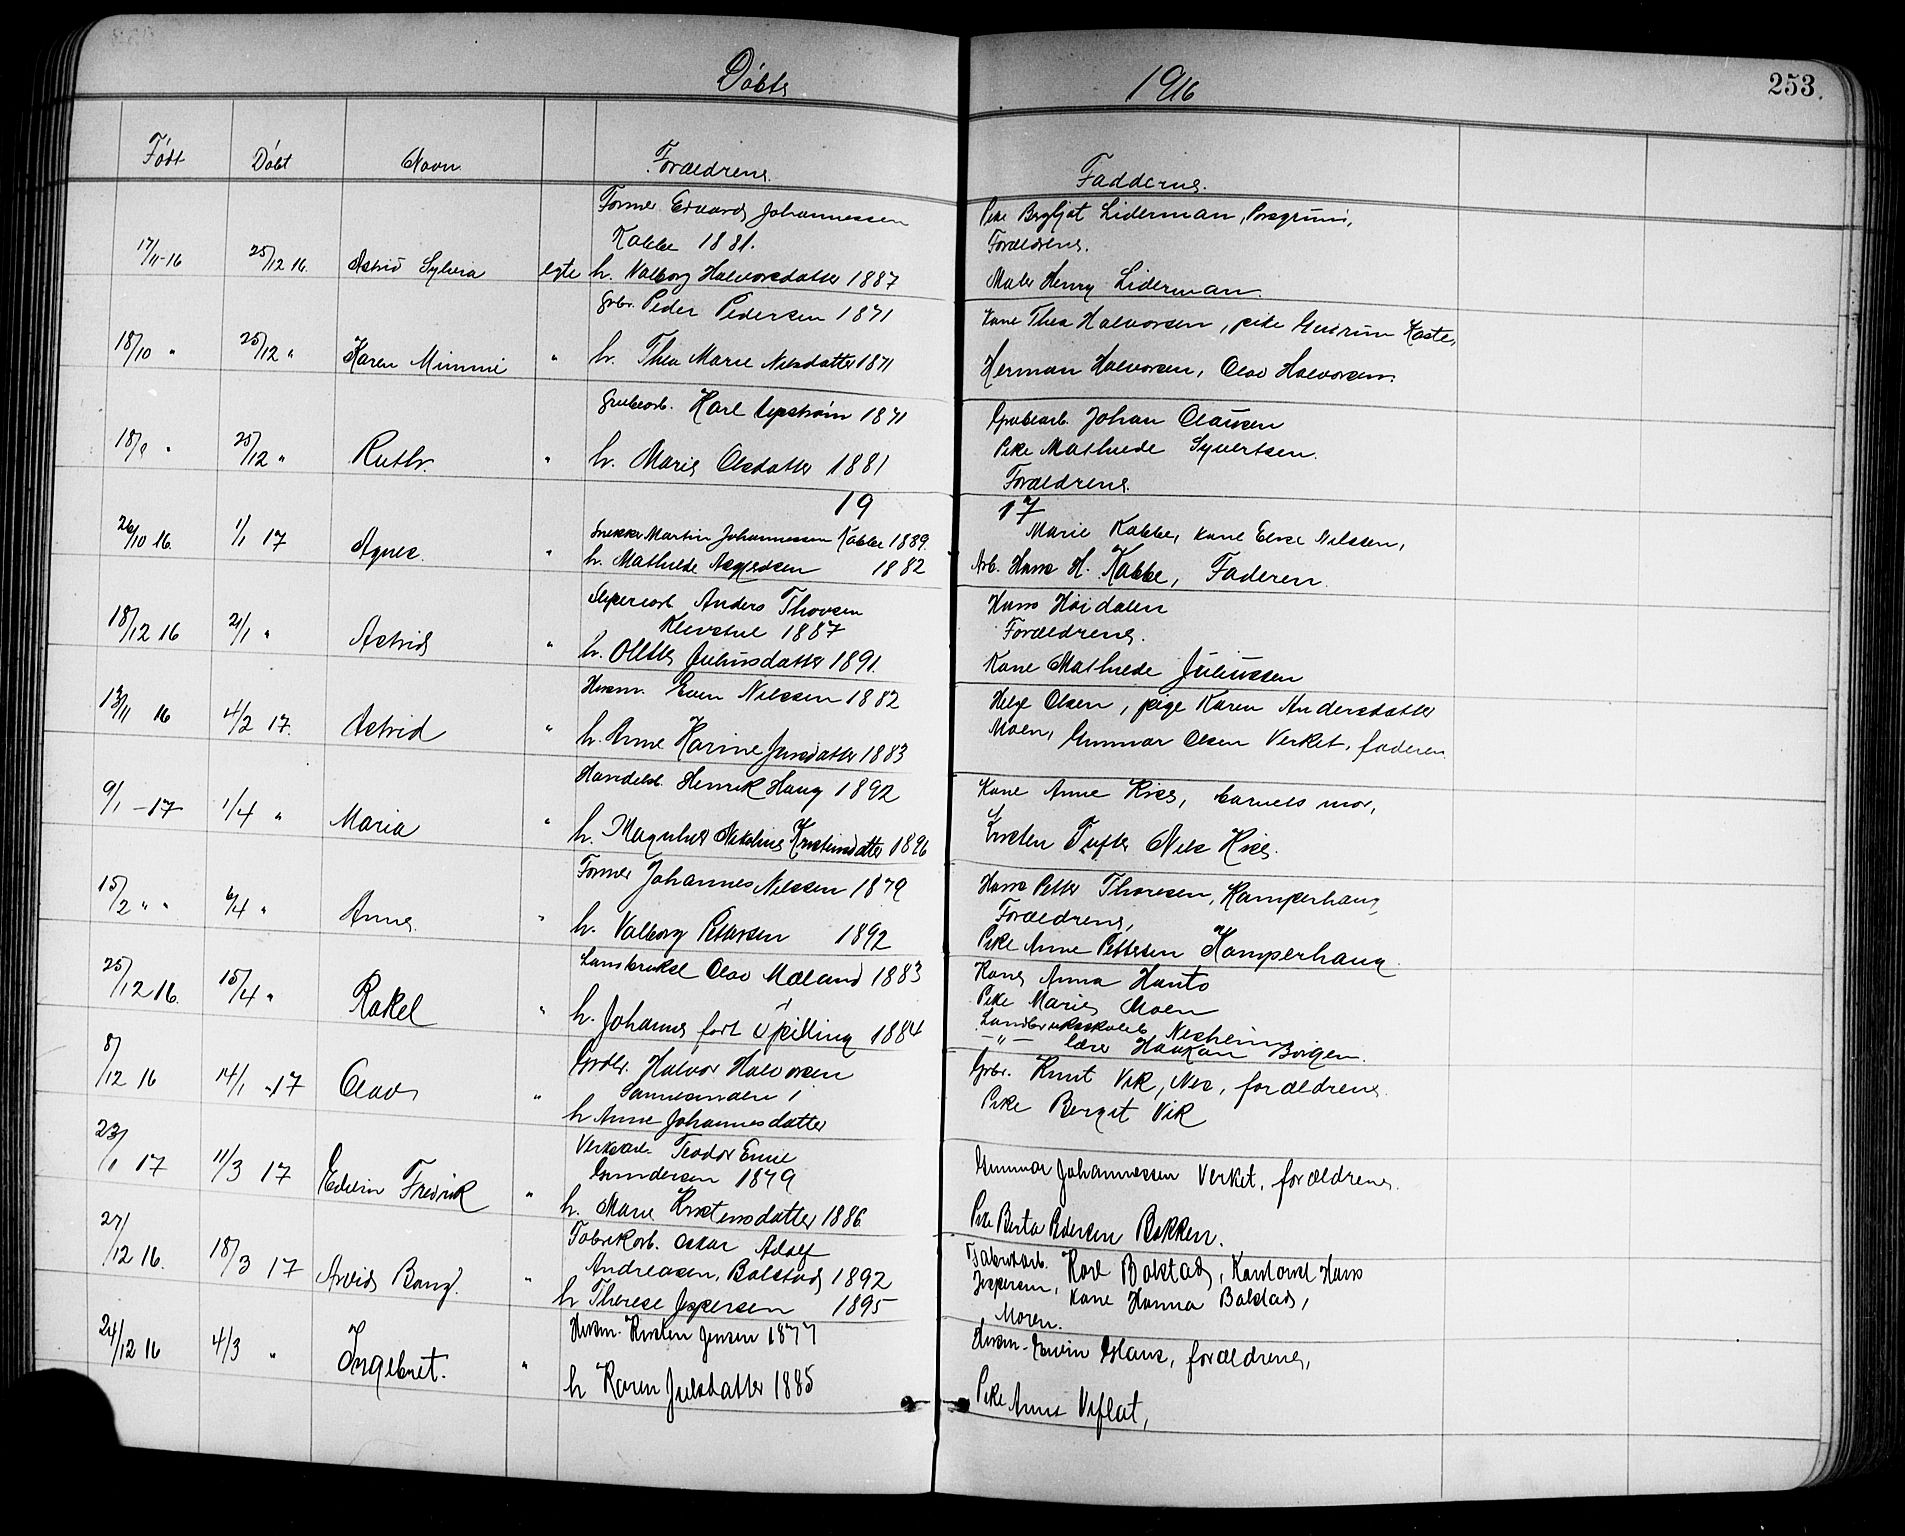 Döbte 1916
253.
Født Döbt Navn Forældrene. Fadderne.
Former. Edvard Johannessen
Kabbe 1881.
17/11-16 25/12 16. Astrid Sylvia egte h. Valborg Halvorsdatter 1887
Pike Bergljot Liderman, Porsgrund,
Forældrene.
Maler Henry Liderman.
Grbr. Peder Pedersen 1871
18/10 " 25/12 " Karen Mimmi " h. Thea Marie Nilsdatter 1871
Kone Thea Halvorsen, pike Gudrun Kaste,
Herman Halvorsen, Olav Halvorsen.
Grubearb. Karl 1871
25/12 " Ruth. " h. Marie Olsdatter 1881
Grubearb. Johan Clausen
Pike Mathilde Syvertsen.
Forældrene.
19 17
Snekker Martin Johannessen Kabbe 1889.
26/10 16. 1/1 17 Agnes. " h. Mathilde 1882
Marie Kabbe, kone Else Nilssen,
Arb. Hans H. Kabbe, Faderen.
Sliperiarb. Anders Thovsen
Klevstul 1887
18/12 16 21/1 " Astrid " h. Olette Juliusdatter 1891.
Hans Høidalen
Forældrene.
Kone Mathilde Juliussen
Husm. Even Nilssen 1882
13/11 16 4/2 17. Astrid " h. Anne Karine Jensdatter 1883
Helge Olsen, pige Karen Andersdatter
Moen, Gunnar Olsen Verket, faderen.
Handelsb. Henrik Haug 1892
9/1-17 1/4 " Maria " h. Magnhild Nikoline Kristensdatter 1896
Kone Anne Riis, barnets mor,
Kristen Tufte, Nils Riis.
Former Johannes Nilssen 1879
15/2 " " 6/4 " Anne " h. Valborg Pettersen 1892
Hans Petter Thoresen, Kamperhaug,
Forældrene,
Pike Anne Pettersen Kamperhaug.
Landbruksl. Olav Mæland 1883
25/12 16. 15/4 " Rakel " h. Johanne født Spilling 1884
Kone Anna Hanto
Pike Marie Moen
Landbruksskoleb. Nesheim
-"- lærer Haakon Borgen.
Grdbr. Halvor Halvorsen
Sannesmoen
8/12 16 14/1-17 Olav " h Anne Johannesdatter
Grbr. Knut Vik, Nes, forældrene.
Pike Bergit Vik
Verksarb. Teodor Emil
Gundersen 1879
23/1 17 11/3 17 Edvin Fredrik " h. Marie Kristensdatter 1886
Gunnar Johannessen Verket, forældrene.
Pike Berta Pedersen Bakken.
Fabrikarb. Oskar Adolf
Andreasen, Bolstad 1892
27/12 16. 18/3 17 Arvid Bang. " h Therese Jespersen 1895
Fabrikarb. Karl Bolstad, Kantonist Hans
Jespersen, kone Hanna Bolstad,
Moren.
Husm. Kristen Jensen 1877
24/12 16 4/3 " Ingebret. " h Karen Julsdatter 1885
Husm. Edvin Øslans, forældrene,
Pike Anne Viflat,